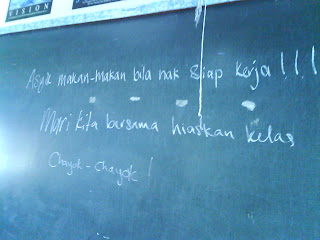 VISION
Asyik makan-makan bila nak siap kerja!!!!
Mari kita bersama hiaskan kelas
Chayok-chayok!